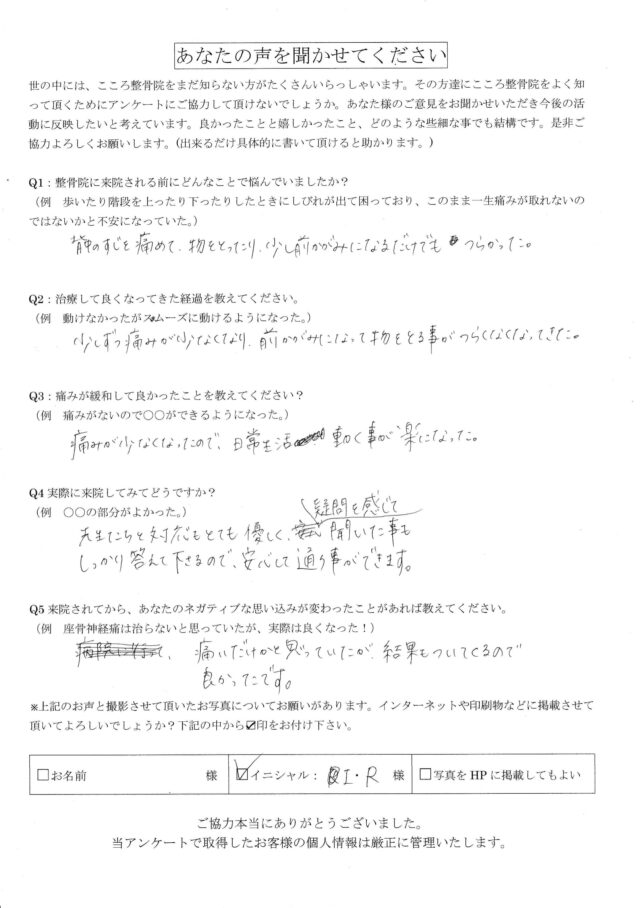 あなたの声を聞かせてください
世の中には、こころ整骨院をまだ知らない方がたくさんいらっしゃいます。その方達にこころ整骨院をよく知
って頂くためにアンケートにご協力して頂けないでしょうか。あなた様のご意見をお聞かせいただき今後の活
動に反映したいと考えています。良かったことと嬉しかったこと、どのような些細な事でも結構です。是非ご
協力よろしくお願いします。(出来るだけ具体的に書いて頂けると助かります。)
Q1：整骨院に来院される前にどんなことで悩んでいましたか？
（例　歩いたり階段を上ったり下ったりしたときにしびれが出て困っており、このまま一生痛みが取れないの
ではないかと不安になっていた。）
背中のすじを痛めて、物をとったり、少し前かがみになるだけでも つらかった。
Q2：治療して良くなってきた経過を教えてください。
（例　動けなかったがスムーズに動けるようになった。）
少しずつ痛みが少なくなり、前かがみになって物をとる事がつらくなくなってきた。
Q3：痛みが緩和して良かったことを教えてください？
（例　痛みがないので〇〇ができるようになった。）
痛みが少なくなったので、日常生活 動く事が楽になった。
Q4 実際に来院してみてどうですか？
（例　〇〇の部分がよかった。）
疑問を感じて
先生たちと対応もとても優しく、聞いた事も
しっかり答えて下さるので、安心して通う事ができます。
Q5 来院されてから、あなたのネガティブな思い込みが変わったことがあれば教えてください。
（例　座骨神経痛は治らないと思っていたが、実際は良くなった！）
病院に行って、痛いだけかと思っていたが、結果もついてくるので
良かったです。
※上記のお声と撮影させて頂いたお写真についてお願いがあります。インターネットや印刷物などに掲載させて
頂いてよろしいでしょうか？下記の中から☑印をお付け下さい。
□お名前　様　☑イニシャル：I・R 様　□写真を HP に掲載してもよい
ご協力本当にありがとうございました。
当アンケートで取得したお客様の個人情報は厳正に管理いたします。